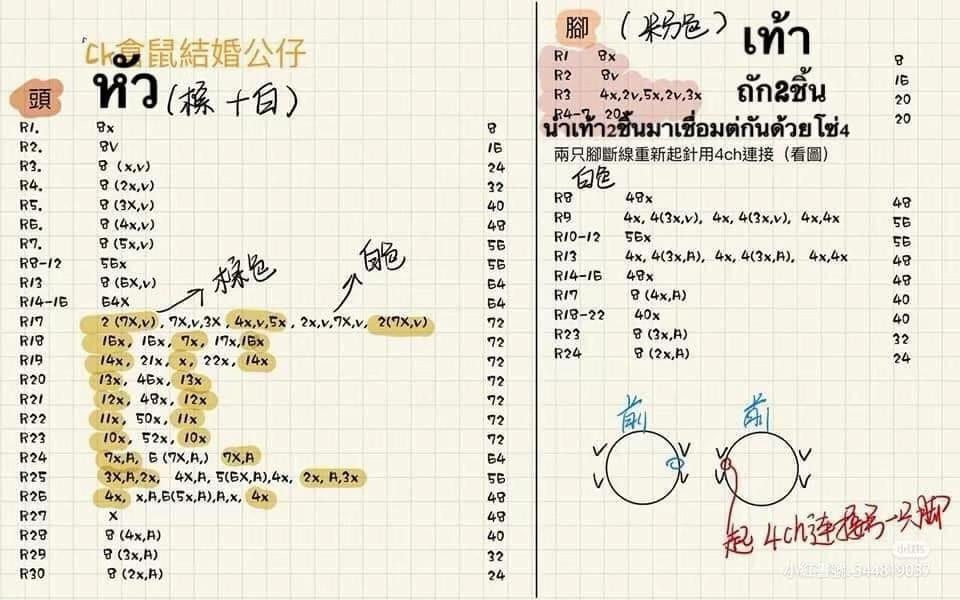 「Ck倉鼠結婚公仔
頭 หัว (棕+白)
R1. 8x 8
R2. 8V 16
R3. 8 (x,v) 24
R4. 8 (2x,v) 32
R5. 8 (3X,v) 40
R6. 8 (4x,v) 48
R7. 8 (5x,v) 56
R8-12 56x 56
R13 8 (6X,v) 64
R14-16 64X 64
棕色 白色
R17 2 (7X,v), 7X,v,3X, 4x,v,5x, 2x,v,7X,v, 2(7X,v) 72
R18 16x, 16x, 7x, 17x,16x 72
R19 14x, 21x, x, 22x, 14x 72
R20 13x, 46x, 13x 72
R21 12x, 48x, 12x 72
R22 11x, 50x, 11x 72
R23 10x, 52x, 10x 72
R24 7x,A, 6 (7X,A,) 7X,A 64
R25 3X,A,2x, 4X,A, 5(6X,A),4x, 2x, A,3x 56
R26 4x, x,A,6(5x,A),A,x, 4x 48
R27 X 48
R28 8 (4x,A) 40
R29 8 (3x,A) 32
R30 8 (2x,A) 24
腳 (粉色) เท้า
R1 8x 8
R2 8v 16
R3 4x,2v,5x,2v,3x 20
ถัก2ชิ้น
R4-7 20 20
นำเท้า2ชิ้นมาเชื่อมต่กันด้วยโซ่4
兩只腳斷線重新起針用4ch連接（看圖）
白色
R8 48x 48
R9 4x, 4(3x,v), 4x, 4(3x,v), 4x,4x 56
R10-12 56x 56
R13 4x, 4(3x,A), 4x, 4(3x,A), 4x,4x 48
R14-16 48x 48
R17 8 (4x,A) 40
R18-22 40x 40
R23 8 (3x,A) 32
R24 8 (2x,A) 24
前 前
V V V V
V V V V
起 4ch連接另一只腳
小红书
小红書號:344819037